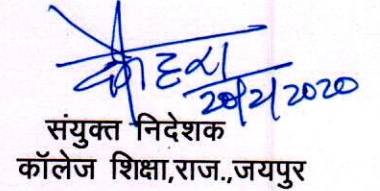 20/2/2020
संयुक्त निदेशक
कॉलेज शिक्षा,राज.,जयपुर